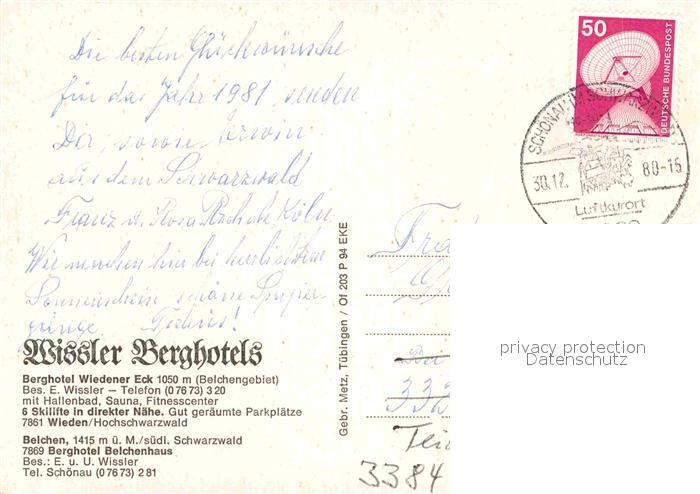 Die besten Glückwünsche
für das Jahr 1981 senden
Dir, sowie Erwin
aus dem Schwarzwald
Franz u. Rosa Köln
Wir machen hier bei herrlichem
Sonnenschein schöne Spazier-
gänge. Tschüs!
Wissler Berghotels
Berghotel Wiedener Eck 1050 m (Belchengebiet)
Bes. E. Wissler – Telefon (0 76 73) 3 20
mit Hallenbad, Sauna, Fitnesscenter
6 Skilifte in direkter Nähe. Gut geräumte Parkplätze
7861 Wieden/Hochschwarzwald
Belchen, 1415 m ü. M./südl. Schwarzwald
7869 Berghotel Belchenhaus
Bes.: E. u. U. Wissler
Tel. Schönau (0 76 73) 2 81
Gebr. Metz, Tübingen / Of 203 P 94 EKE
50
DEUTSCHE BUNDESPOST
SCHÖNAU IM SCHWARZWALD
30.12.
80-15
Luftkurort
privacy protection
Datenschutz
332
3384